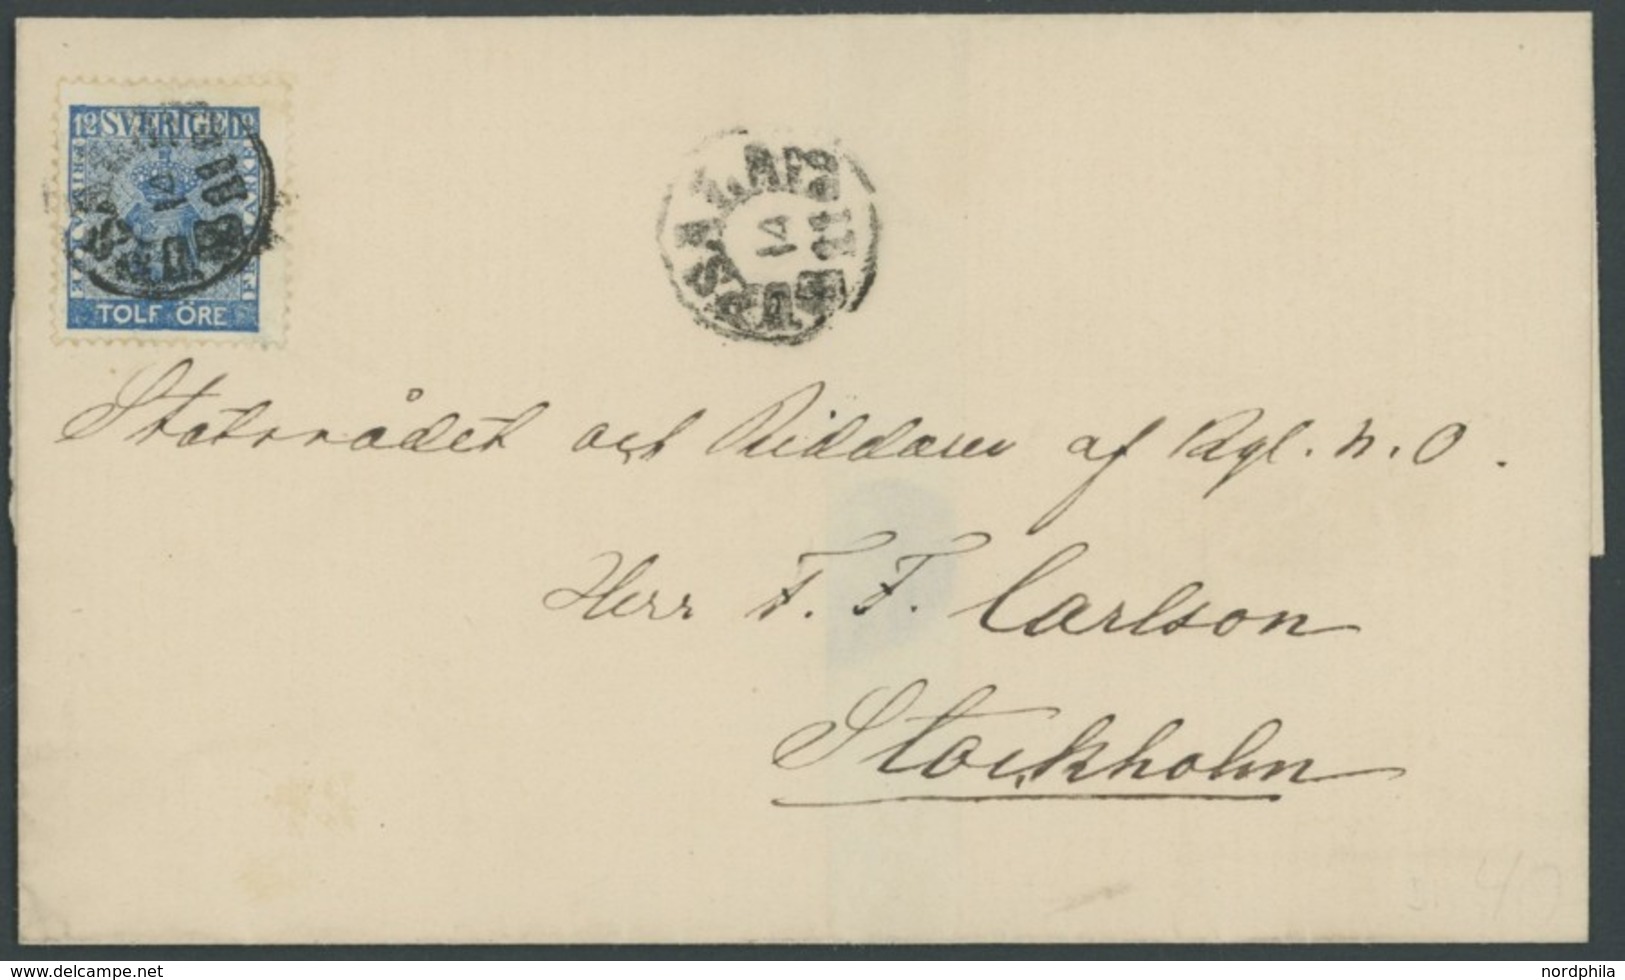 12 SVERIGE 12
FRIMÄRKE
FRIMÄRKE
TOLF ÖRE
14
14
Statsrådet och Riddaren af Kgl. N. O.
Herr F. F. Carlson
Stockholm
www.delcampe.net
nordphila